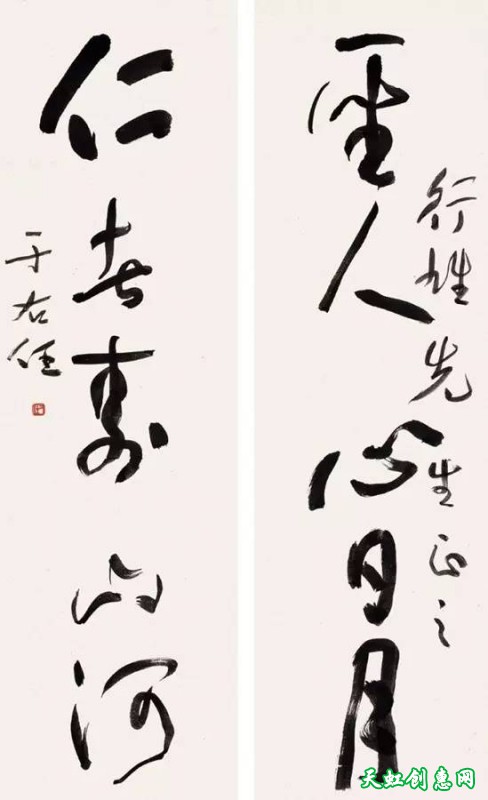 圣人心日月
行雄先生正之
仁者寿山河
于右任
天虹创惠网